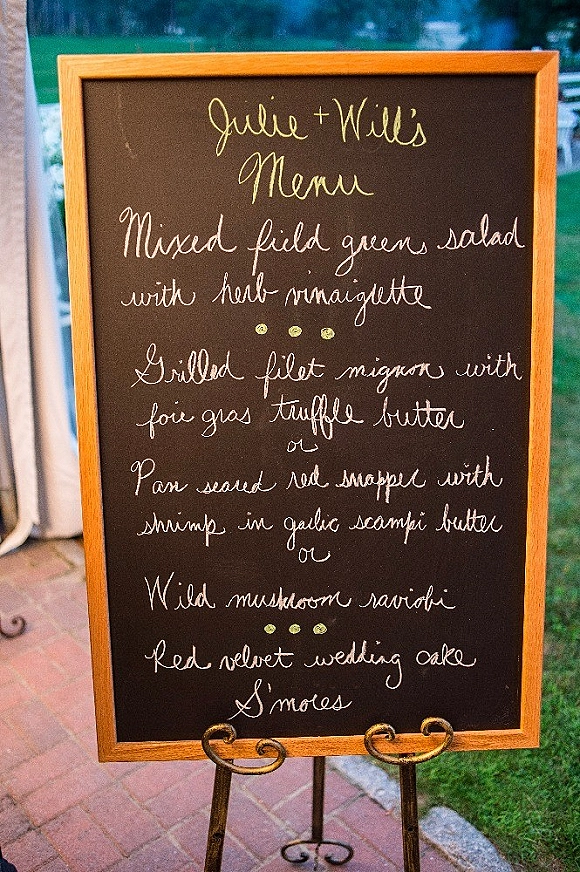 Julie + Will's
Menu
Mixed field greens salad
with herb vinaigrette
Grilled filet mignon with
foie gras truffle butter
or
Pan seared red snapper with
shrimp in garlic scampi butter
or
Wild mushroom ravioli
Red velvet wedding cake
S'mores